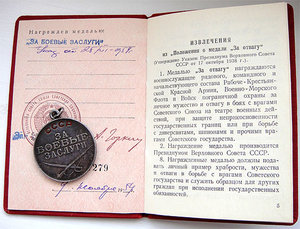 Награжден медалью
„ЗА БОЕВЫЕ ЗАСЛУГИ"
СССР
ЗА
БОЕВЫЕ
ЗАСЛУГИ
279
ИЗВЛЕЧЕНИЯ
из „Положения о медали „За отвагу"
(утверждено Указом Президиума Верховного Совета
СССР от 17 октября 1938 г.)
1. Медалью „За отвагу" награждаются
военнослужащие рядового, командного и
начальствующего состава Рабоче-Крестьян-
ской Красной Армии, Военно-Морского
Флота и Войск пограничной охраны за
личное мужество и отвагу в боях с врагами
Советского Союза на театре военных дей-
ствий, при защите неприкосновенности
государственных границ или при борьбе
с диверсантами, шпионами и прочими вра-
гами Советского государства.
2. Награждение медалью производится
Президиумом Верховного Совета СССР.
8. Награжденные медалью должны пода-
вать личный пример храбрости, мужества
и отваги в борьбе с врагами Советского
государства и служить образцом для других
граждан при исполнении государственных
обязанностей.
5